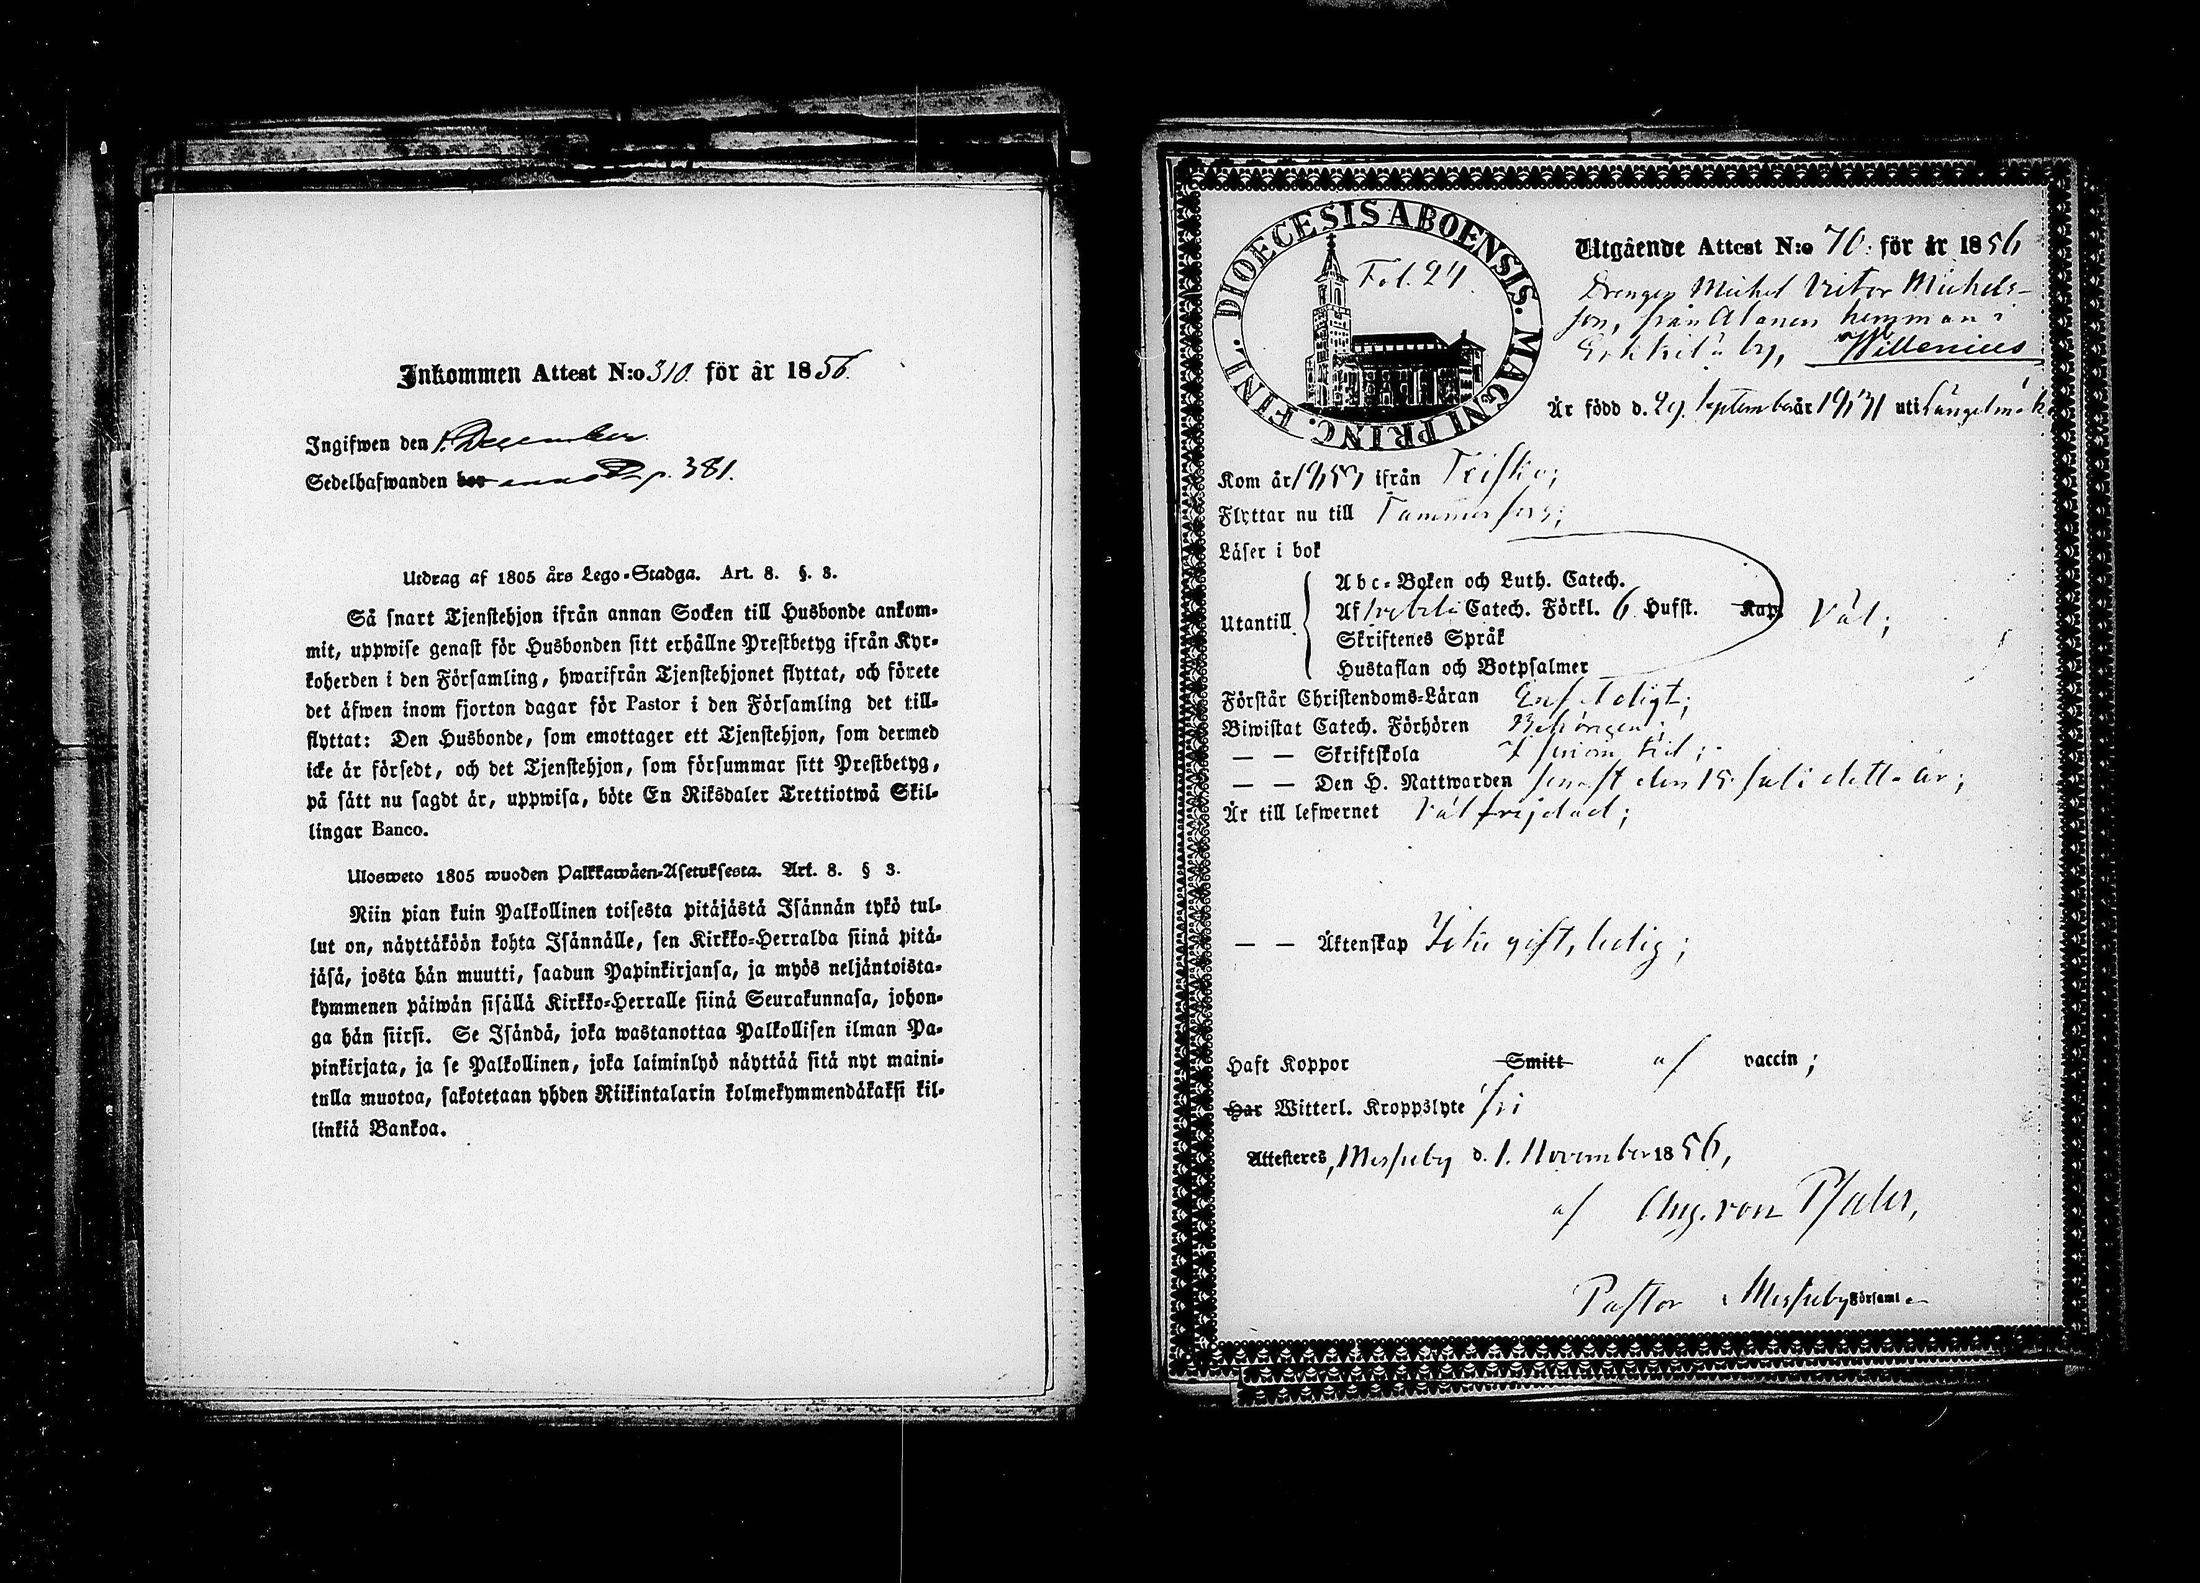 Inkommen Attest N:o 310. för år 1856.
Ingifwen den 1. December
Sedelhafwanden bor p. 381.
Utdrag af 1805 års Lego-Stadga. Art. 8. §. 3.
Så snart Tjenstehjon ifrån annan Socken till Husbonde ankom-
mit, uppwise genast för Husbonden sitt erhållne Prestbetyg ifrån Kyr-
koherden i den Församling, hwarifrån Tjenstehjonet flyttat, och förete
det äfwen inom fjorton dagar för Pastor i den Församling det till-
flyttat: Den Husbonde, som emottager ett Tjenstehjon, som dermed
icke är försedt, och det Tjenstehjon, som försummar sitt Prestbetyg,
på sätt nu sagdt är, uppwisa, böte En Riksdaler Trettiotwå Skil-
lingar Banco.
Ulosweto 1805 wuoden Palkkawäen-Asetuksesta. Art. 8. § 3.
Niin pian kuin Palkollinen toisesta pitäjästä Isännän tykö tul-
lut on, näyttäköön kohta Isännälle, sen Kirkko-Herralda siinä pitä-
jäsä, josta hän muutti, saadun Papinkirjansa, ja myös neljäntoista-
kymmenen päiwän sisällä Kirkko-Herralle siinä Seurakunnasa, johon-
ga hän siirsi. Se Isändä, joka wastanottaa Palkollisen ilman Pa-
pinkirjata, ja se Palkollinen, joka laiminlyö näyttää sitä nyt maini-
tulla muotoa, sakotetaan yhden Riikintalarin kolmekymmendäkaksi kil-
linkiä Bankoa.
DIOECESIS ABOENSIS. MAGNI PRINC. FINL.
Fol. 24.
Utgående Attest N:o 70. för år 1856
Drengen Michel Victor Michels-
son, från Alanen hemman i
Erkkilä by, Willenius
Är född d. 29. September år 1831 uti Längelmäki
Kom år 1853 ifrån Teisko;
Flyttar nu till Tammerfors;
Läser i bok
Utantill
Abc-Boken och Luth. Catech.
Af Catech. Förkl. 6 Hufst. Kap.
Skriftenes Språk
Hustaflan och Botpsalmer
Väl;
Förstår Christendoms-Läran Enfaldigt;
Biwistat Catech. Förhören Behörigen;
— — Skriftskola I sinom tid;
— — Den H. Nattwarden senast den 15 Juli detta år;
Är till lefwernet Välfrejdad;
— — Äktenskap Icke gift, ledig;
Haft Koppor Smitt af vaccin;
Har Witterl. Kroppslyte fri
Attesteres, Messuby d. 1. November 1856,
af Aug. von Pfaler,
Pastor i Messuby Församl.